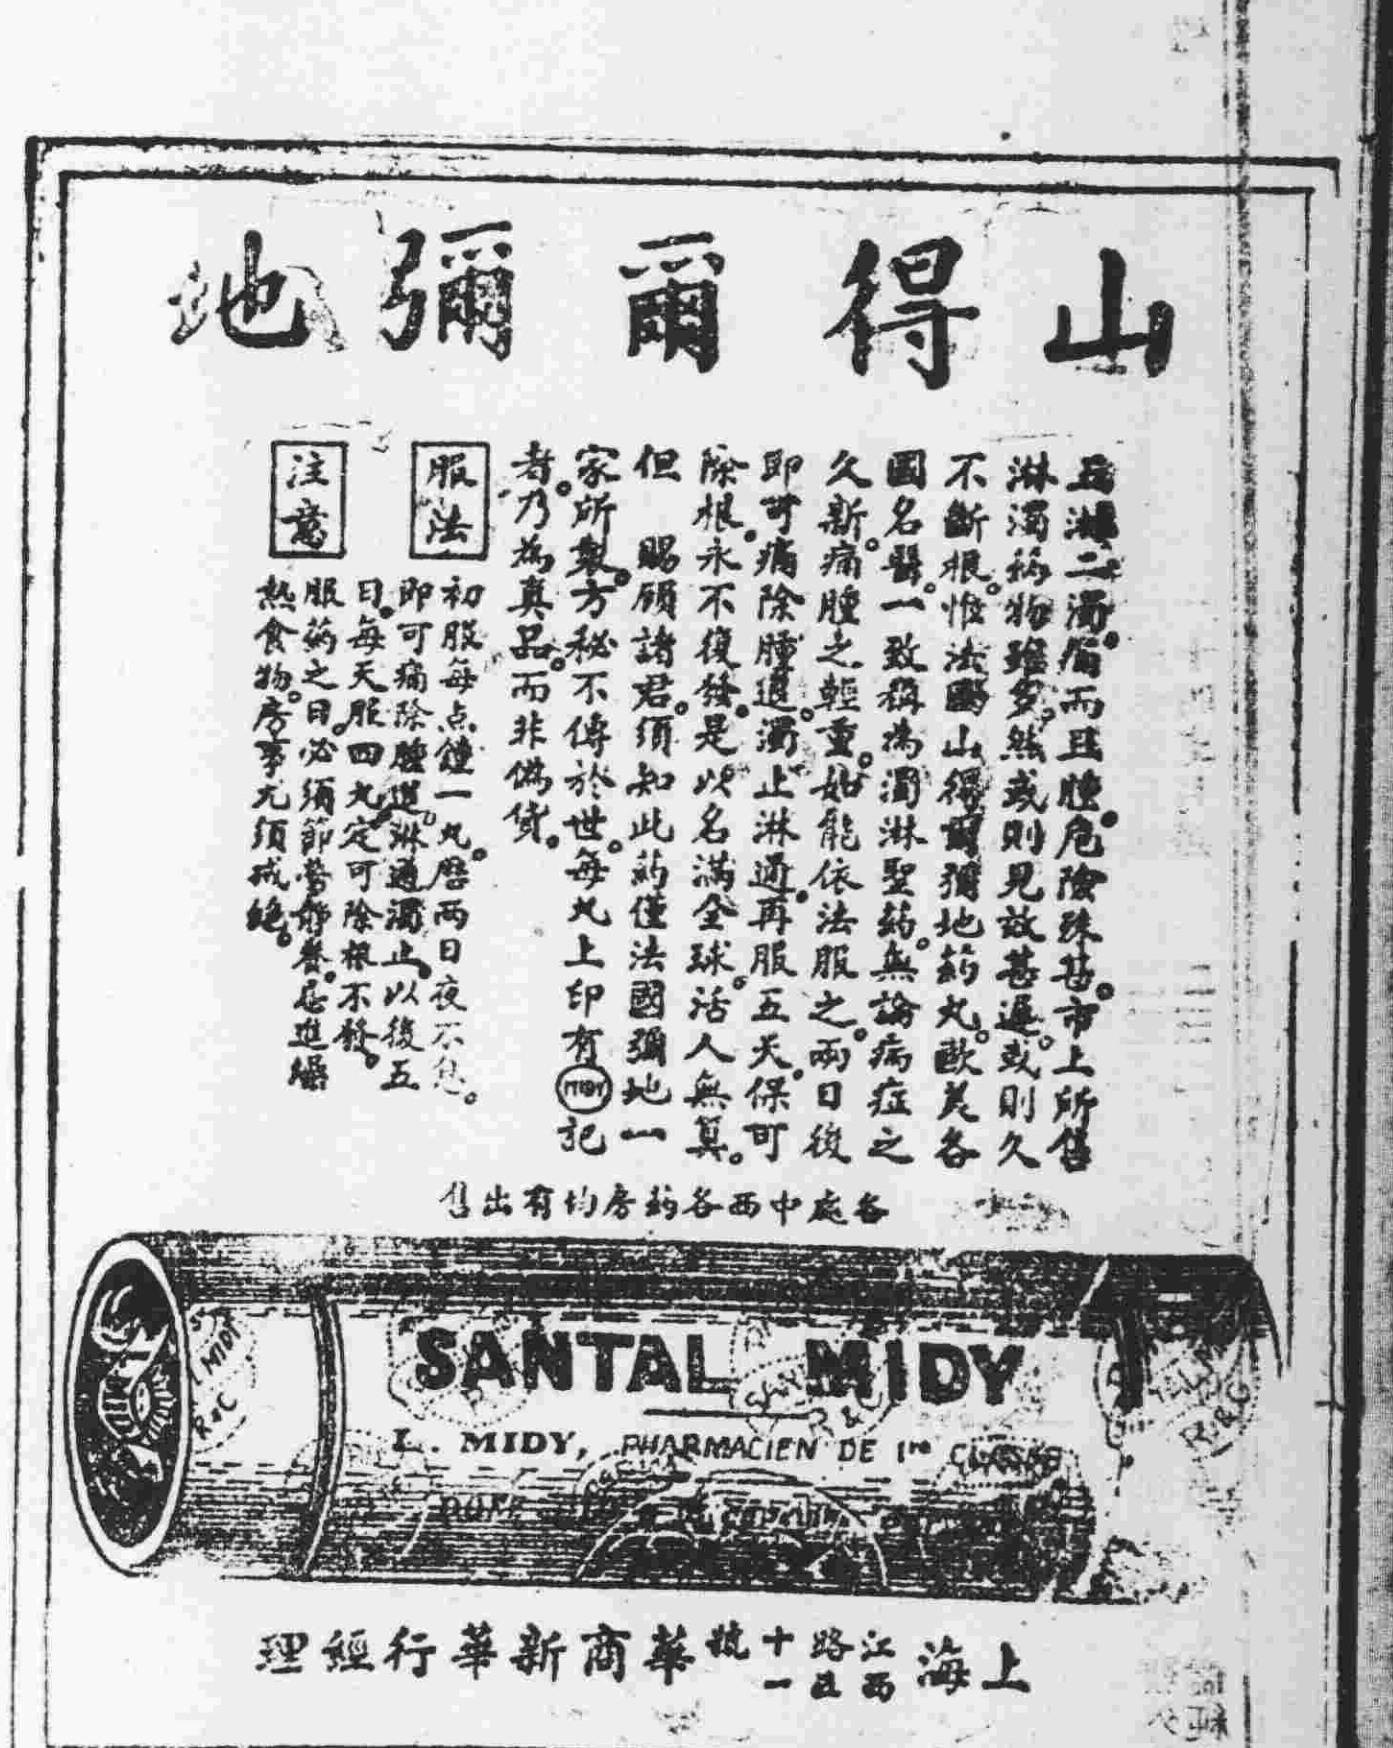 山得爾彌地
五淋二濁。痛而且腫。危險殊甚。市上所售
淋濁药物雖多。然或則見效甚遲。或則久
不斷根。惟法國山得爾彌地药丸。歐美各
國名醫。一致稱為濁淋聖药。無論病症之
久新。痛腫之輕重。如能依法服之。兩日後
即可痛除腫退。濁止淋通。再服五天。保可
除根。永不復發。是以名滿全球。活人無算。
但 賜顧諸君。須知此药僅法國彌地一
家所製。方秘不傳於世。每丸上印有MIDY記
者。乃為真品。而非偽貨。
服法
初服每点鐘一丸。歷兩日夜不息。
即可痛除腫退。淋通濁止。以後五
日。每天服四丸。定可除根不發。
注意
服药之日。必須節勞靜養。忌進燥
熱食物。房事尤須戒絕。
各處中西各药房均有出售
SANTAL MIDY
L. MIDY, PHARMACIEN DE 1re CLASSE
上海江西路五十一號華商新華行經理